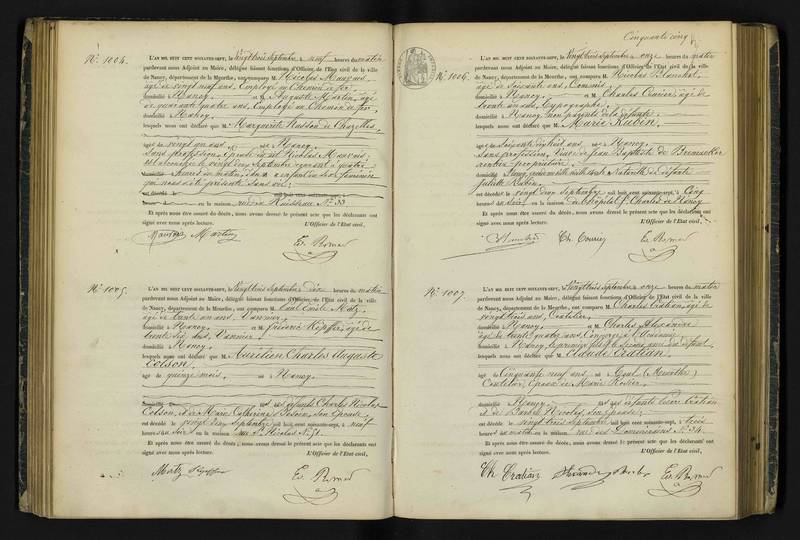 N° 1004.
L'AN MIL HUIT CENT SOIXANTE-SEPT, le vingt trois septembre à neuf heures du matin
pardevant nous Adjoint au Maire, délégué faisant fonctions d'Officier de l'Etat civil de la ville
de Nancy, département de la Meurthe, ont comparu M. Nicolas
âgé de vingt neuf ans, Employé au Chemin de fer,
domicilié à Nancy, et M. Auguste Martin, âgé
de quarante quatre ans, Employé au Chemin de fer
domicilié à Nancy,
lesquels nous ont déclaré que M. Marguerite Husson de Chazelles,
âgé de vingt un ans né à Nancy,
sans profession, épouse du dit Nicolas
est accouchée le vingt deux septembre courant à quatre
heures du matin, d'un enfant du sexe féminin
qui nous a été présenté sans vie;
est décédé le mil huit cent soixante-sept, à
heures du en la maison rue du Ruisseau N° 33
Et après nous être assuré du décès, nous avons dressé le présent acte que les déclarants ont
signé avec nous après lecture. L'Officier de l'Etat civil,
Martin
N° 1005.
L'AN MIL HUIT CENT SOIXANTE-SEPT, le vingt trois septembre à dix heures du matin
pardevant nous Adjoint au Maire, délégué faisant fonctions d'Officier de l'Etat civil de la ville
de Nancy, département de la Meurthe, ont comparu M. Paul Emile
âgé de trente un ans, Vannier,
domicilié à Nancy, et M. Frédéric âgé de
trente six ans, Vannier,
domicilié à Nancy,
lesquels nous ont déclaré que M. Aurélien Charles Auguste
Colson,
âgé de quinze mois, né à Nancy,
domicilié à fils des défunts Charles Nicolas
Colson, et de Marie Catherine son épouse
est décédé le vingt deux septembre mil huit cent soixante-sept, à neuf
heures du soir en la maison rue St Nicolas N° 51.
Et après nous être assuré du décès, nous avons dressé le présent acte que les déclarants ont
signé avec nous après lecture. L'Officier de l'Etat civil,
Cinquante cinq
N° 1006.
L'AN MIL HUIT CENT SOIXANTE-SEPT, le vingt trois septembre à onze heures du matin
pardevant nous Adjoint au Maire, délégué faisant fonctions d'Officier de l'Etat civil de la ville
de Nancy, département de la Meurthe, ont comparu M. Nicolas
âgé de soixante ans, Commis
domicilié à Nancy, et M. Charles âgé de
trente un ans, Typographe,
domicilié à Nancy, non parents de la défunte,
lesquels nous ont déclaré que M. Marie Rubin,
âgé de soixante dix huit ans né à Nancy,
sans profession, Veuve de Jean Baptiste de
domicilié à Nancy fille naturelle de défunte
Juliette Rubin,
est décédé le vingt deux septembre mil huit cent soixante-sept, à cinq
heures du soir en la maison de l'hôpital St Charles de Nancy
Et après nous être assuré du décès, nous avons dressé le présent acte que les déclarants ont
signé avec nous après lecture. L'Officier de l'Etat civil,
N° 1007.
L'AN MIL HUIT CENT SOIXANTE-SEPT, le vingt trois septembre à onze heures du matin
pardevant nous Adjoint au Maire, délégué faisant fonctions d'Officier de l'Etat civil de la ville
de Nancy, département de la Meurthe, ont comparu M. Charles Cratian, âgé de
vingt trois ans, Coutelier,
domicilié à Nancy, et M. Charles Alexandre
âgé de trente quatre ans,
domicilié à Nancy, le premier fils, le second ami du défunt
lesquels nous ont déclaré que M. Claude Cratian,
âgé de cinquante neuf ans, né à (Meurthe)
Coutelier, époux de Marie Rosier,
domicilié à Nancy, fils des défunts Pierre Cratian
et de Barbe Nicolas, son épouse;
est décédé le vingt trois septembre mil huit cent soixante-sept, à trois
heures du matin en la maison rue des Dominicains N° 34.
Et après nous être assuré du décès, nous avons dressé le présent acte que les déclarants ont
signé avec nous après lecture. L'Officier de l'Etat civil,
Ch Cratian